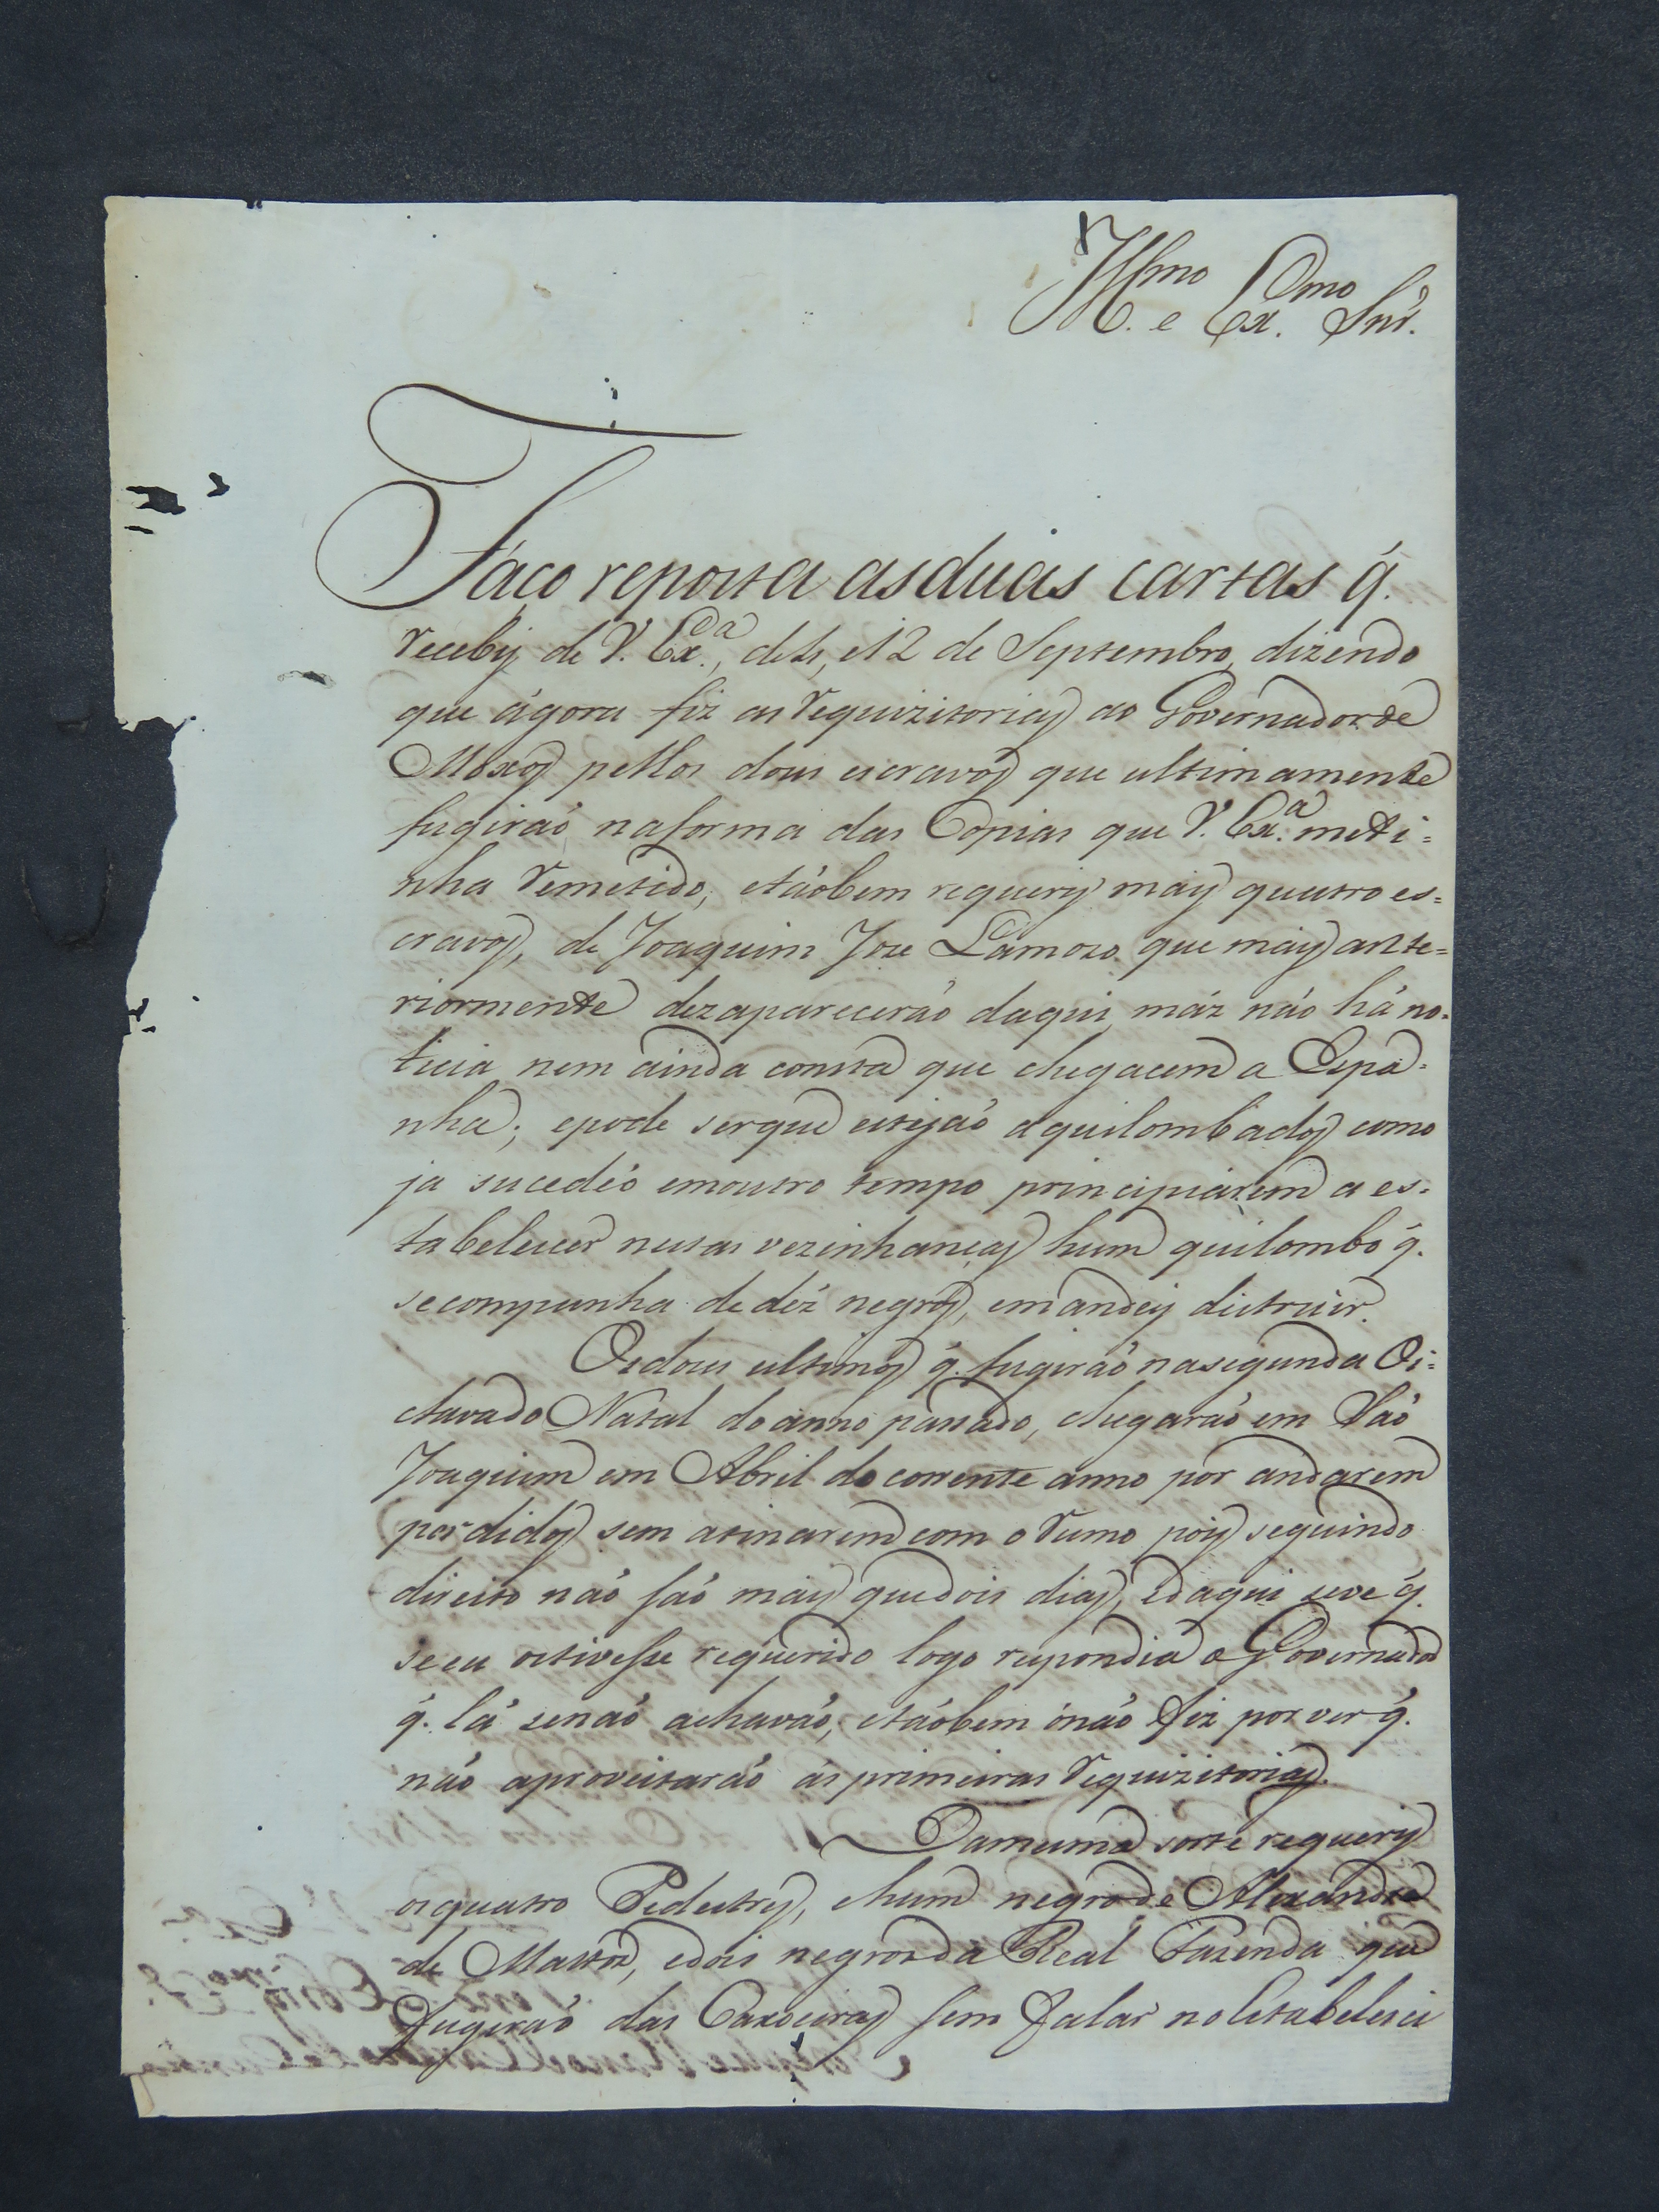 Ill.mo e Ex.mo Snr.
Faço reposta as duas cartas q̃.
recebÿ de V. Ex.a, de 4, e 12 de Septembro, dizendo
que ágora fiz as requizitorias ao Governador de
Moxos pellos dous escravos que ultimamente
fugiraó, na forma das Copias que V. Ex.a me ti=
nha remetido, e táobem requerÿ mais quatro es=
cravos, de Joaquim Joze Lamozo que mais ante=
riormente dezapareceráo daqui, máz náo há no=
ticia nem ainda consta que chegacem a Espa=
nha; e pode ser que estejáo aquilombados como
ja sucedéo em outro tempo principiarem a es=
tabelecer nestas vezinhanças hum quilombo q̃.
se compunha de déz negros, e mandeÿ distruir.
Os dous ultimos q̃. fugiraó na segunda Oi=
ctava do Natal do anno passado, chegaraó em Saó
Joaquim em Abril do corrente anno por andarem
perdidos sem atinarem com o rumo pois seguindo
direito náo saó mais que dois dias, e daqui se ve q̃.
se eu os tivesse requerido logo respondia o Governador
q̃. lá se naó achaváo, e táobem ó náo fiz por ver q̃.
náo aproveitaráo ás primeiras requizitorias.
Da mesma sorte requerÿ
os quatro Pedestres, e hum negro de Alexandre
de Mattos, e dois negros da Real Fazenda que
fugiraó das Caxoeiras sem falar no Estabeleci